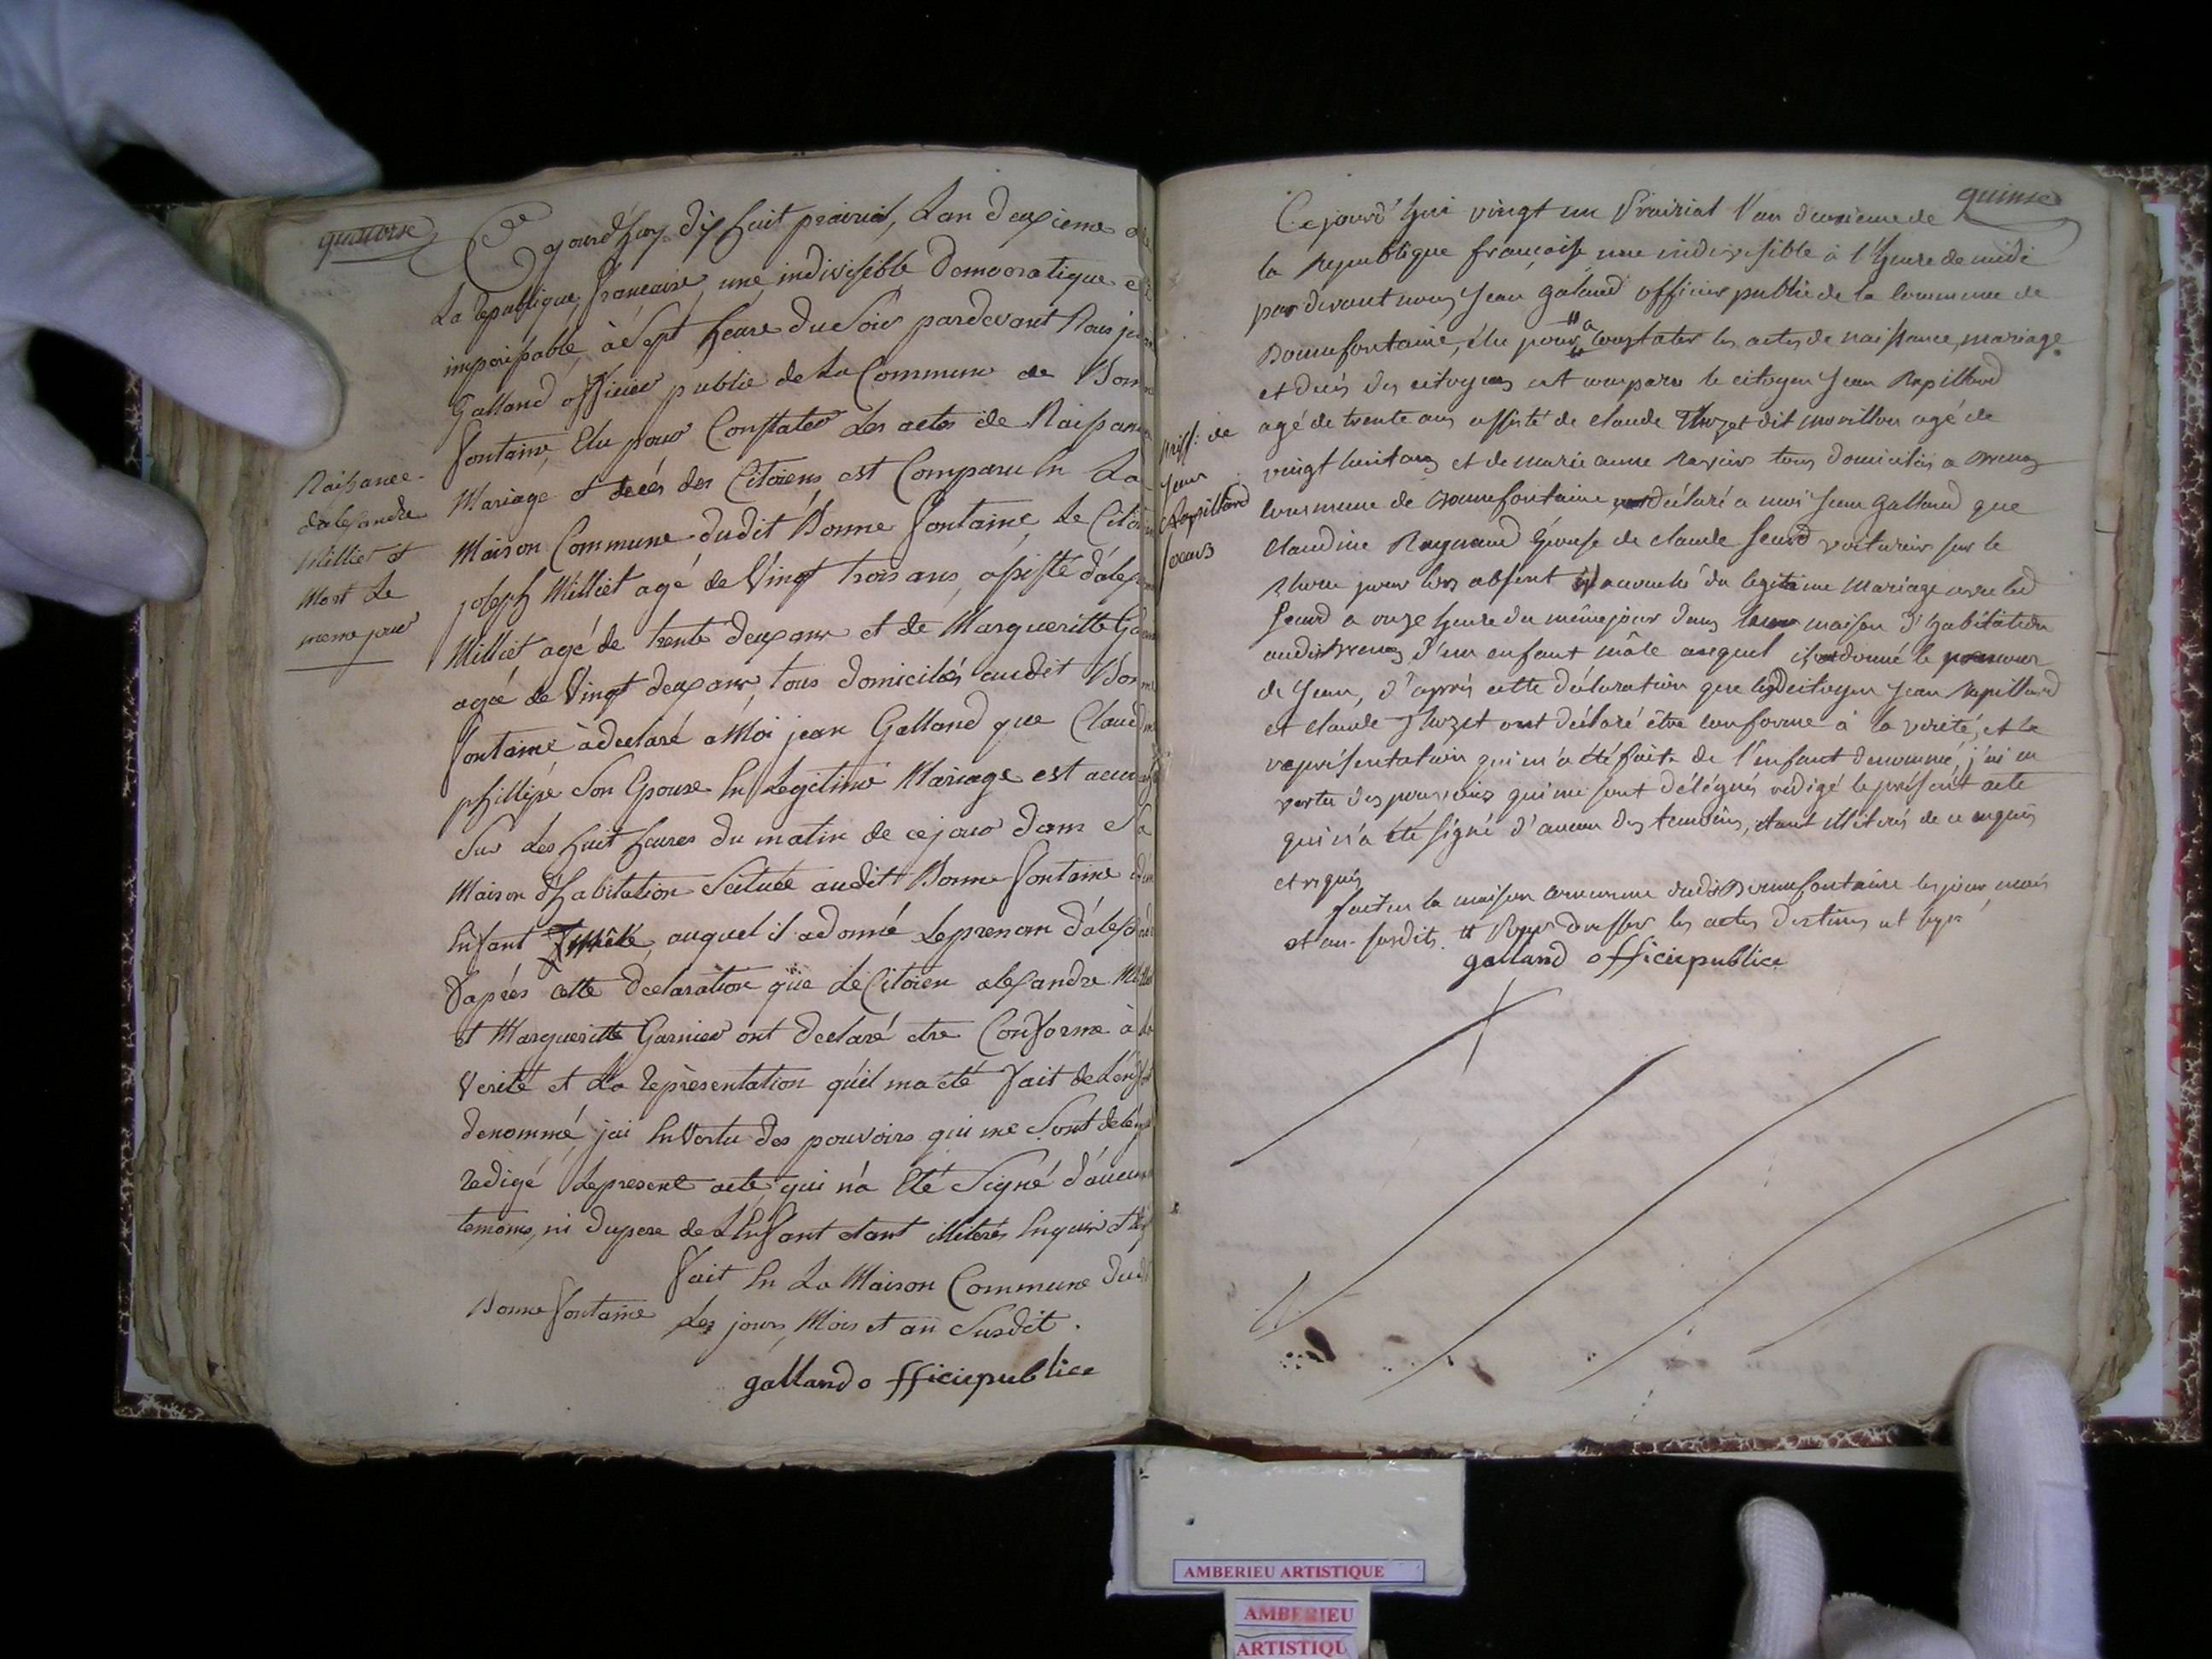 quatorse
Ce jourdhuy dix huit prairial, Lan deuxieme de
La republique, francaise, une, indivisible democratique et
imperissable, à Sept heure du Soir pardevant Nous jean
Galland officier public de La Commune de Bonne
fontaine, Elu pour Constater Les actes de Naissance
Mariage et decés des Citoiens est Comparu En La
Maison Commune dudit Bonne fontaine, Le Citoien
joseph Milliet agé de Vingt trois ans, assisté d'alexandre
Milliet agé de trente deux ans et de Margueritte Garnier
agée de Vingt deux ans, tous domiciliés audit Bonne
fontaine, à declaré a Moi jean Galland que Claudine
phillipe Son Epouse En Legitime Mariage est acouché
Sur Les huit heures du matin de ce jour dans Sa
Maison d'habitation Scituée audit Bonne fontaine d'un
Enfant mâle, auquel il a donné Le prenom d'alexandre
D'aprés cette declaration que Le Citoien alexandre Milliet
et Margueritte Garnier ont declaré etre Conforme à la
Verité et La representation qu'il ma eté fait de L'enfant
denommé, jai En Vertu des pouvoirs qui me Sont delegués
redigé Le present acte qui n'a Eté Signé d'aucun
temoins, ni du pere de L'Enfant etant illiterés Enquis et
fait En La Maison Commune dudit
Bonne fontaine Les jours, Mois et an Susdit.
galland officiepublice
Naissance
d'alexandre
Milliet et
Mort Le
meme jour
quinse
Ce jourd'hui vingt un Prairial l'an deuxieme de
la Republique françoise une indivisible à l'heure de midi
par devant nous Jean galand officier public de la commune de
Bonnefontaine, élu pour constater les actes de naissance, mariage
et decès des citoyens est comparu le citoyen Jean Rapillard
agé de trente ans assisté de claude Thozet dit morillon agé de
vingt huit ans et de marie anne Ravier tous domiciliés a
commune de Bonnefontaine declaré a moi Jean Galland que
Claudine Raynaud épouse de claude voiturier sur le
Rhone pour lors absent accouché du legitime mariage avec led
a onze heure du même jour dans maison d'habitation
audit d'un enfant mâle auquel donné le prenom
de Jean, d'après cette déclaration que lesd citoyen Jean Rapillard
et claude Thozet ont déclaré être conforme à la verité, et la
représentation qui m'a été faite de l'enfant denommé, j'ai en
vertu des pouvoirs qui me sont délégués redigé le présent acte
qui n'a été signé d'aucun des temoins, étant illiterés de ce enquis
et requis
fait en la maison commune dudit Bonnefontaine les jour, mois
et an susdits. # Pour dresser les actes destinés
galland officiepublice
de
Jean
Rapillard
AMBERIEU ARTISTIQUE
AMBERIEU
ARTISTIQU